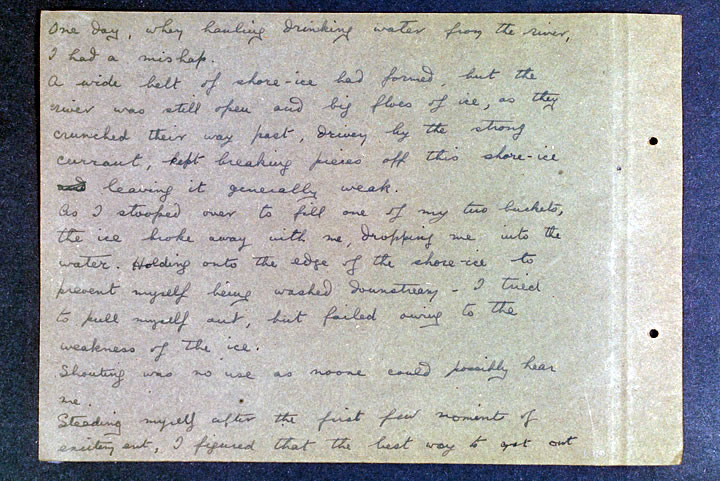 One day, when hauling drinking water from the river,
I had a mishap.
A wide belt of shore-ice had formed, but the
river was still open and big floes of ice, as they
crunched their way past, driven by the strong
currant, kept breaking pieces off this shore-ice
leaving it generally weak.
As I stooped over to fill one of my two buckets,
the ice broke away with me, dropping me into the
water. Holding onto the edge of the shore-ice to
prevent myself being washed downstream - I tried
to pull myself out, but failed owing to the
weakness of the ice.
Shouting was no use as noone could possibly hear
me.
Steading myself after the first few moments of
excitement, I figured that the best way to get out